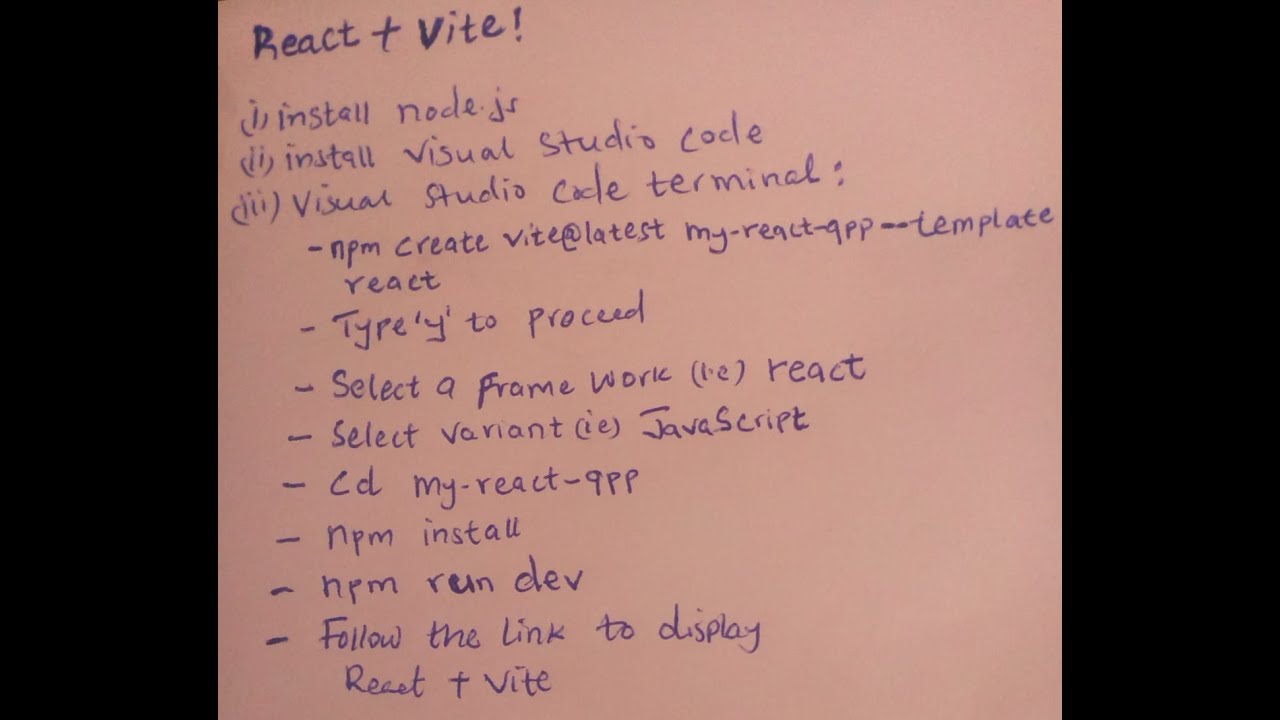 React + Vite!
(i) install node.js
(ii) install visual studio code
(iii) Visual Studio Code terminal:
- npm create vite@latest my-react-app --template
react
- Type 'y' to proceed
- Select a Frame work (i.e) react
- Select variant (ie) JavaScript
- cd my-react-app
- npm install
- npm run dev
- Follow the link to display
React + Vite